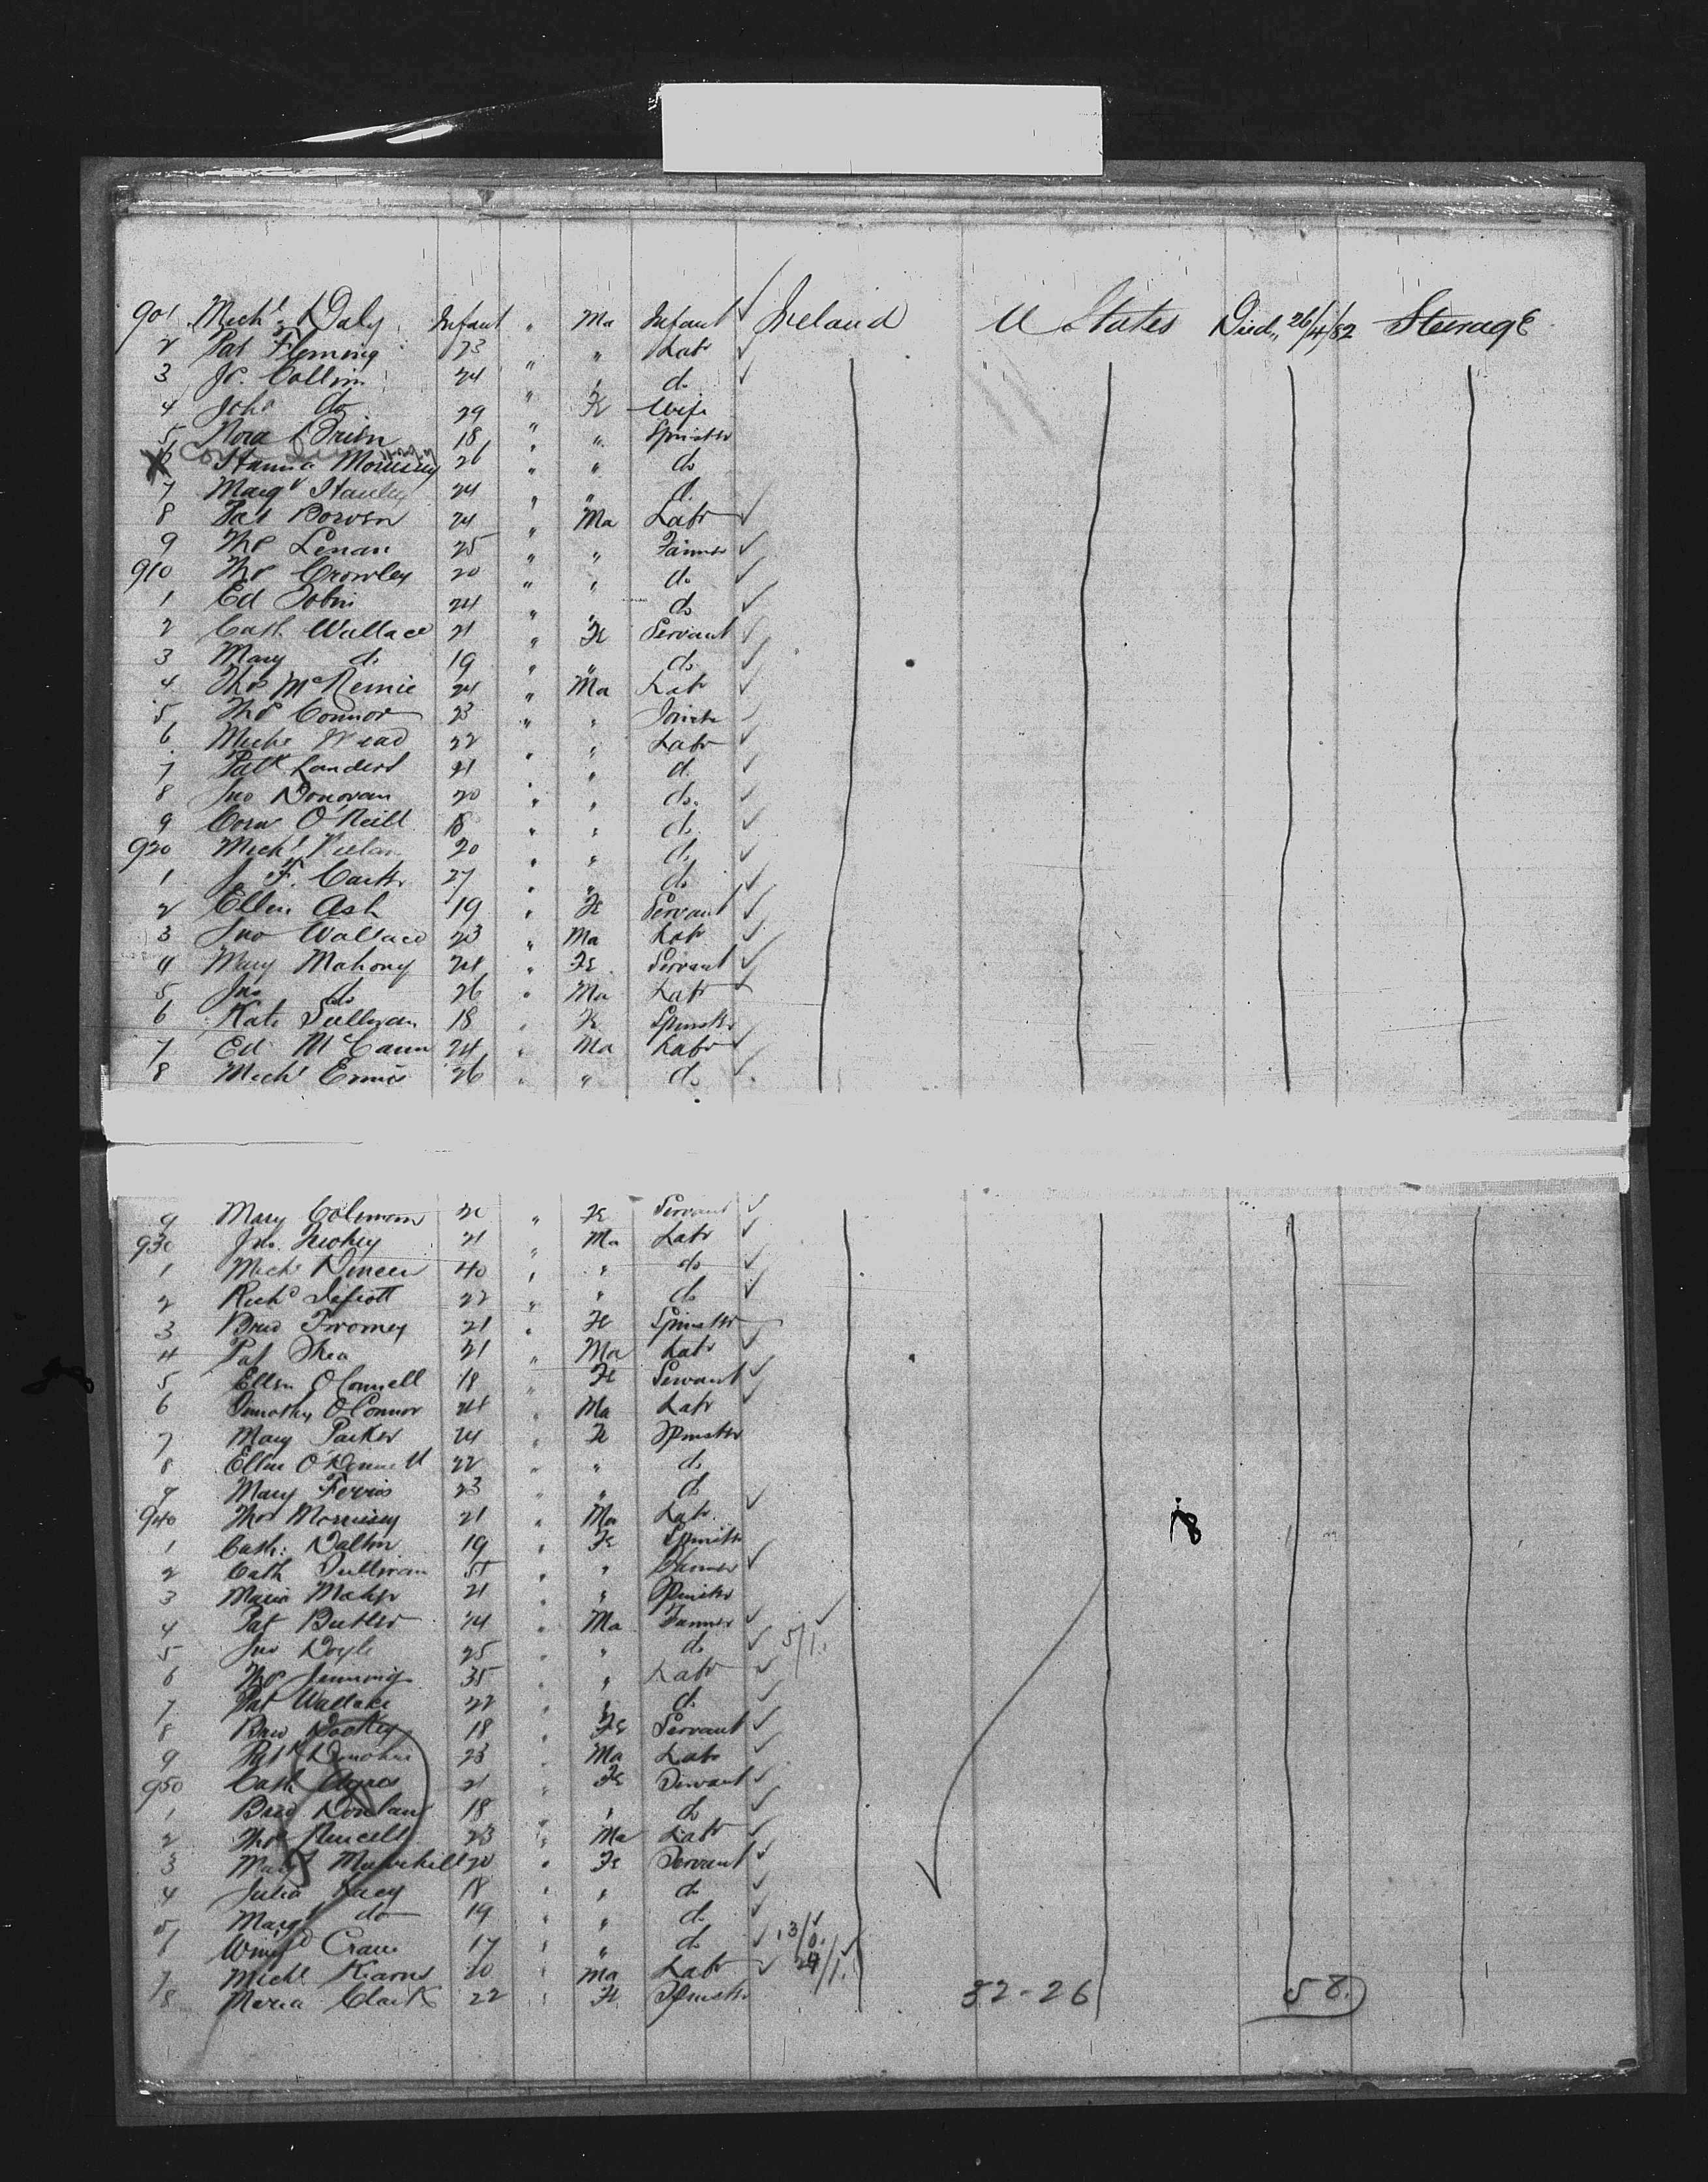 901 Mich<sup>l</sup> Daly Infant " Ma Infant ✓ Ireland U States Died,, 26/4/82 Steerage
2 Pat Fleming 23 " " Labr ✓
3 Js. Collins 24 " " do ✓
4 Joh<sup>a</sup> do 29 " Fe Wife
5 Nora OBrien 18 " " Spinster
6 Hanna Morrissey 26 " " do
7 Marg<sup>t</sup> Hanley 24 " " do
8 Pat Bowen 24 " Ma Labr ✓
9 Ths Lenan 25 " " Farmer ✓
910 Ths Crowley 20 " " do ✓
1 Ed Tobin 24 " " do ✓
2 Cath Wallace 21 " Fe Servant ✓
3 Mary do 19 " " do ✓
4 Ths McNemie 24 " Ma Labr ✓
5 Ths Connor 23 " " ✓
6 Mich<sup>l</sup> 22 " " Labr ✓
7 Pat<sup>k</sup> Landers 21 " " do ✓
8 Jno Donovan 20 " " do ✓
9 Corns O'Neill 18 " " do ✓
920 Mich<sup>l</sup> 20 " " do ✓
1 J. F. 27 " " do ✓
2 Ellen Ash 19 " Fe Servant ✓
3 Jno Wallace 23 " Ma Labr ✓
4 Mary Mahony 24 " Fe Servant ✓
5 Jno do 26 " Ma Labr ✓
6 Kate Sullivan 18 " Fe Spinster
7 Ed McCann 24 " Ma Labr ✓
8 Mich<sup>l</sup> Ennis 26 " " do ✓
9 Mary Coleman " Fe Servant ✓
930 Jno. 21 " Ma Labr ✓
1 Mich<sup>l</sup> 40 " " do ✓
2 Rich<sup>d</sup> 22 " " do ✓
3 Brid Twomey 21 " Fe Spinster
4 Pat Shea 21 " Ma Labr ✓
5 Ellen O'Connell 18 " Fe Servant ✓
6 Timothy O'Connor 24 " Ma Labr ✓
7 Mary Parker 24 " Fe Spinster
8 Ellen O'Donnell 22 " " do
9 Mary Ferris 23 " " do
940 Thos Morrissey 21 " Ma Labr ✓
1 Cath: Dalton 19 " Fe Spinster
2 Cath Sullivan " " Farmer ✓
3 Maria Maher 21 " " Spinster
4 Pat Butler 24 " Ma Farmer ✓
5 Jno Doyle 25 " " do ✓ 5/1.
6 Ths Jennings 35 " " Labr ✓
7 Pat Wallace 22 " " do ✓
8 Brid 18 " Fe Servant ✓
9 Pat<sup>k</sup> Donohue 23 " Ma Labr ✓
950 Cath Agnes 21 " Fe Servant ✓
1 Brid Donlan 18 " " do ✓
2 Ths Purcell 23 " Ma Labr ✓
3 20 " Fe Servant ✓
4 Julia Lacy 18 " " do ✓
5 Marg<sup>t</sup> do 19 " " do ✓
6 Winif<sup>d</sup> 17 " " do ✓
7 Michl Kearns 20 " Ma Labr ✓
8 Maria Clark 22 " Fe Spinster 32-26 58.